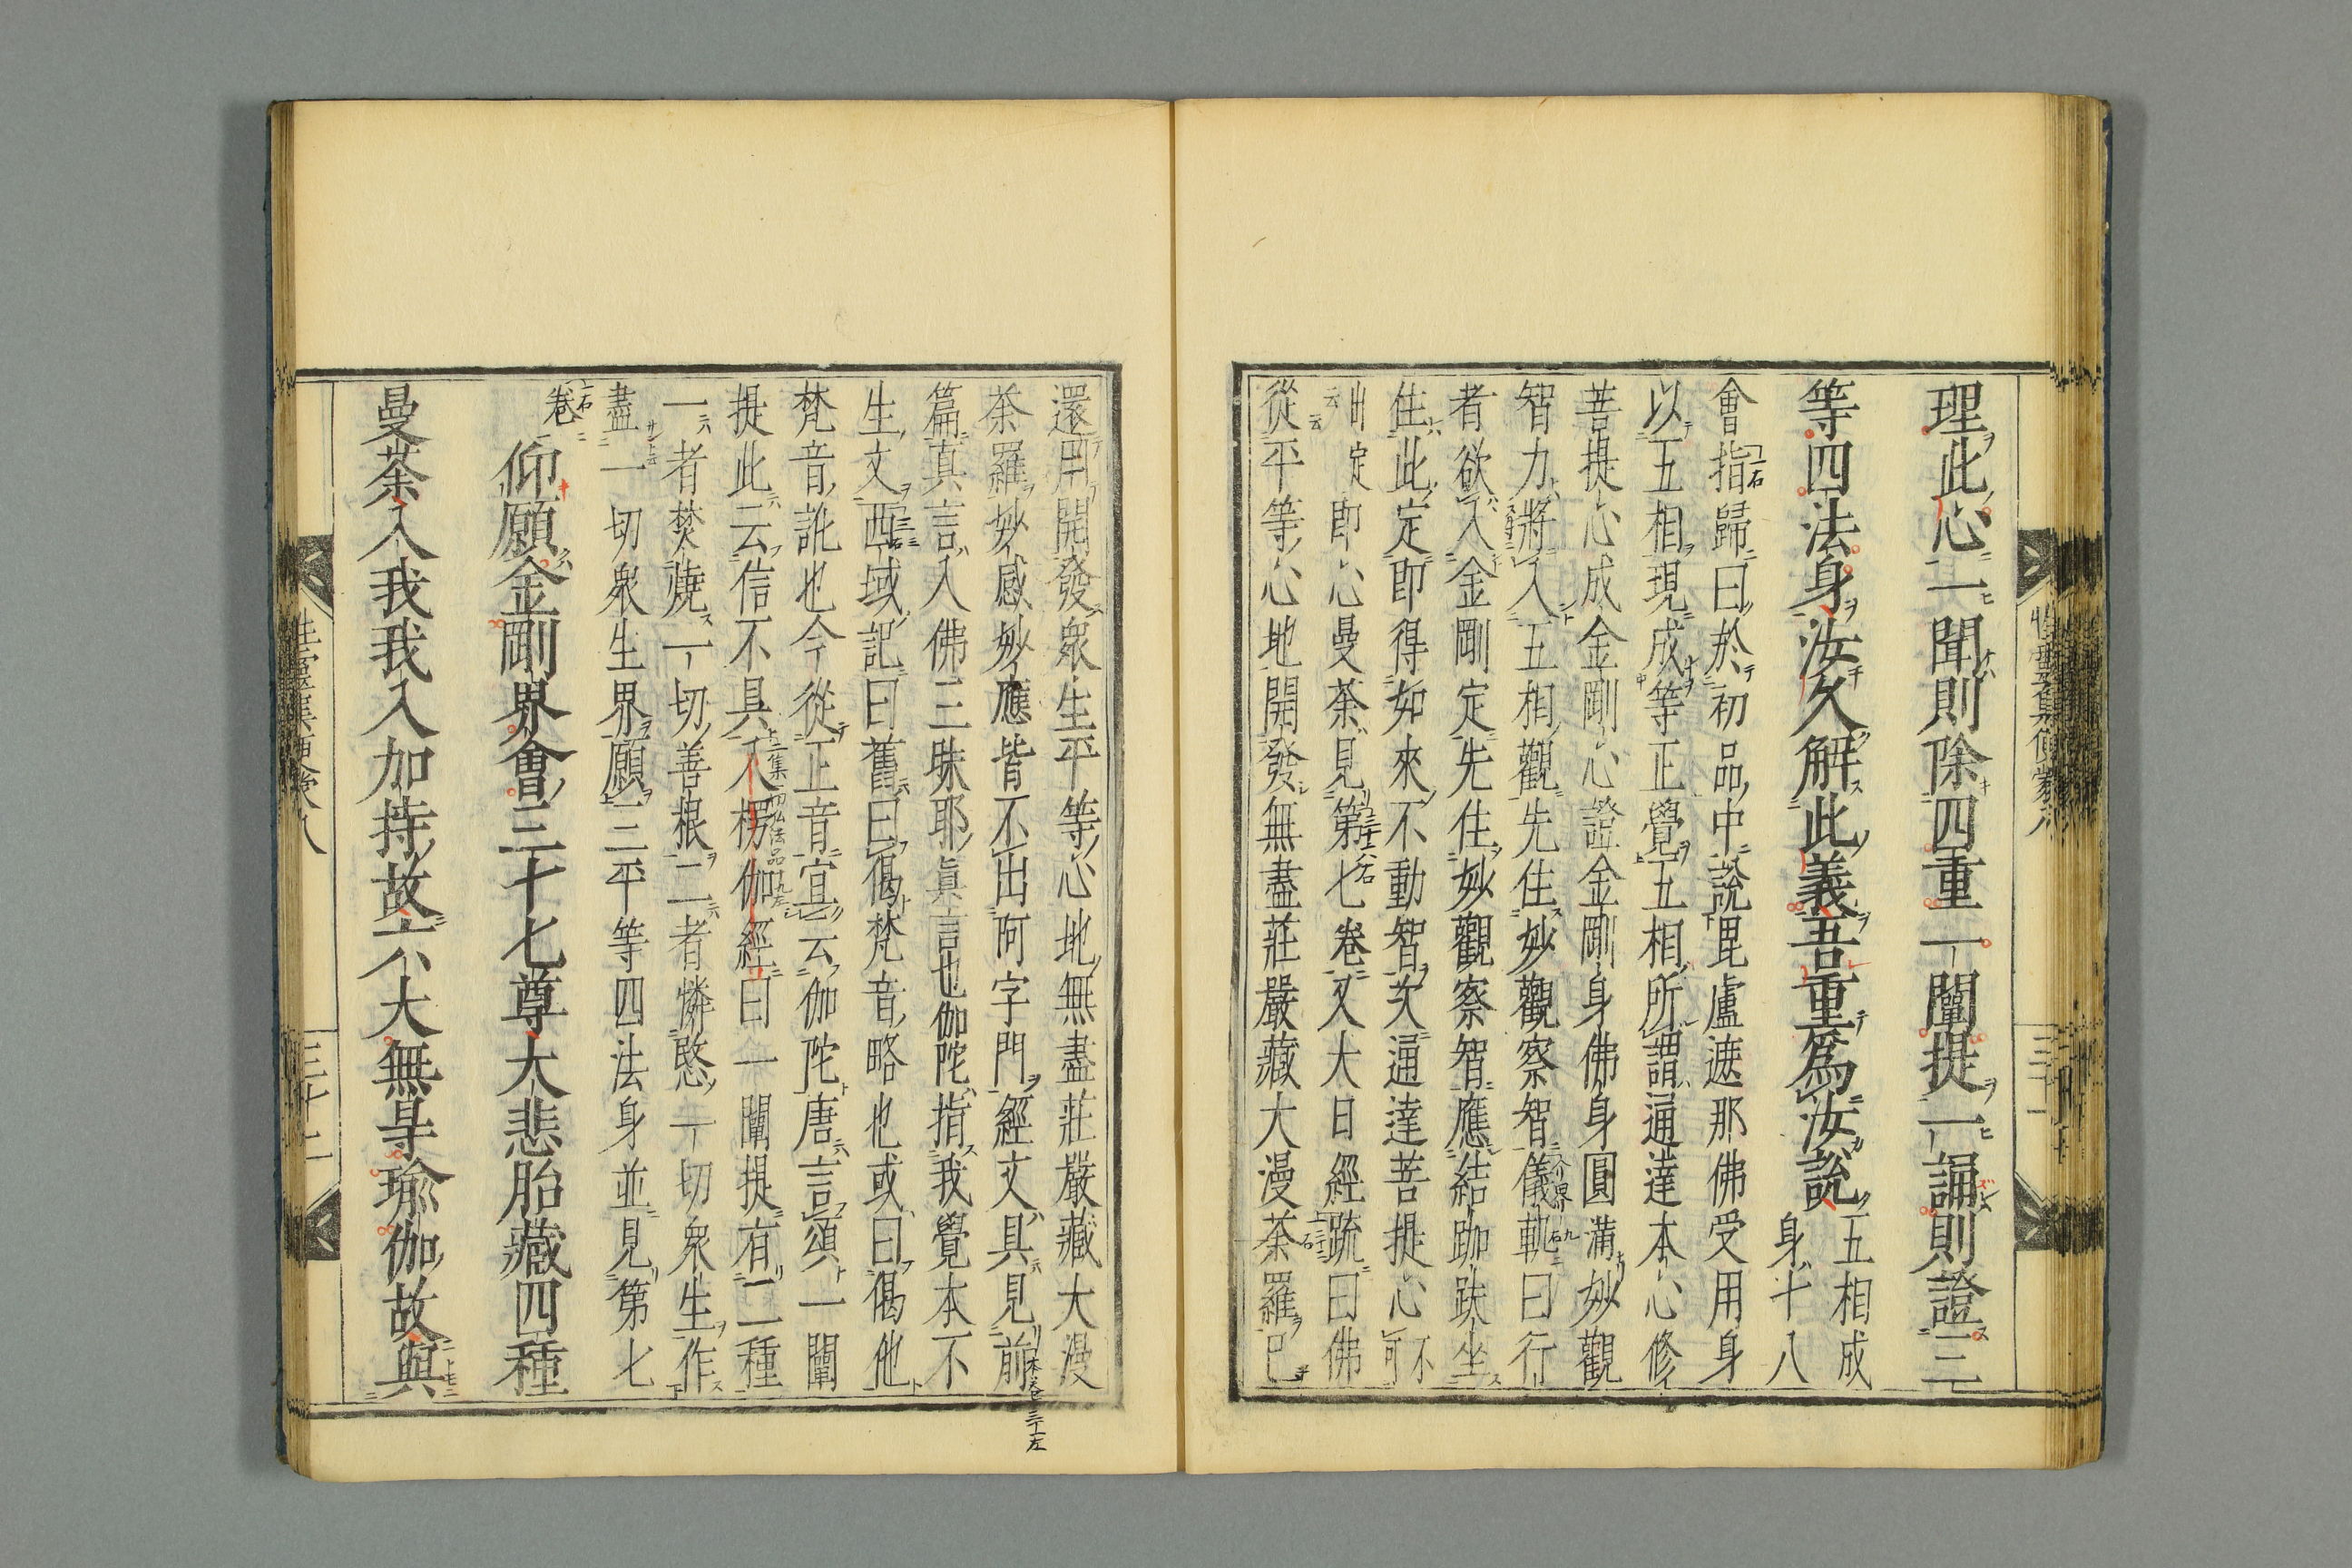 理此心一聞則除四重一闡提一誦則證三
等四法身汝久解此義吾重為汝說
五相成
身十八
會指歸曰於初品中說毘盧遮那佛受用身
以五相現成等正覺五相所謂通達本心修
菩提心成金剛心證金剛身佛身圓滿妙觀
智力將入五相觀先住妙觀察智儀軌曰行
者欲入金剛定先住妙觀察智應結跏趺坐
住此定即得如來不動智次通達菩提心
定即心曼荼見第七卷又大日經疏曰佛
從平等心地開發無盡莊嚴藏大漫荼羅已
還用開發衆生平等心地無盡莊嚴藏大漫
荼羅妙感妙應皆不出阿字門經文具見前
篇真言入佛三昧耶真言也伽陀指我覺本不
生文西域記曰舊曰偈梵音略也或曰偈他
梵音訛也今從正音宜云伽陀唐言頌一闡
提此云信不具入楞伽經曰一闡提有二種
一者焚燒一切善根二者憐愍一切衆生作
盡一切衆生界願三平等四法身並見第七
卷
仰願金剛界會三十七尊大悲胎藏四種
曼荼入我我入加持故六大無㝵瑜伽故與
三十二